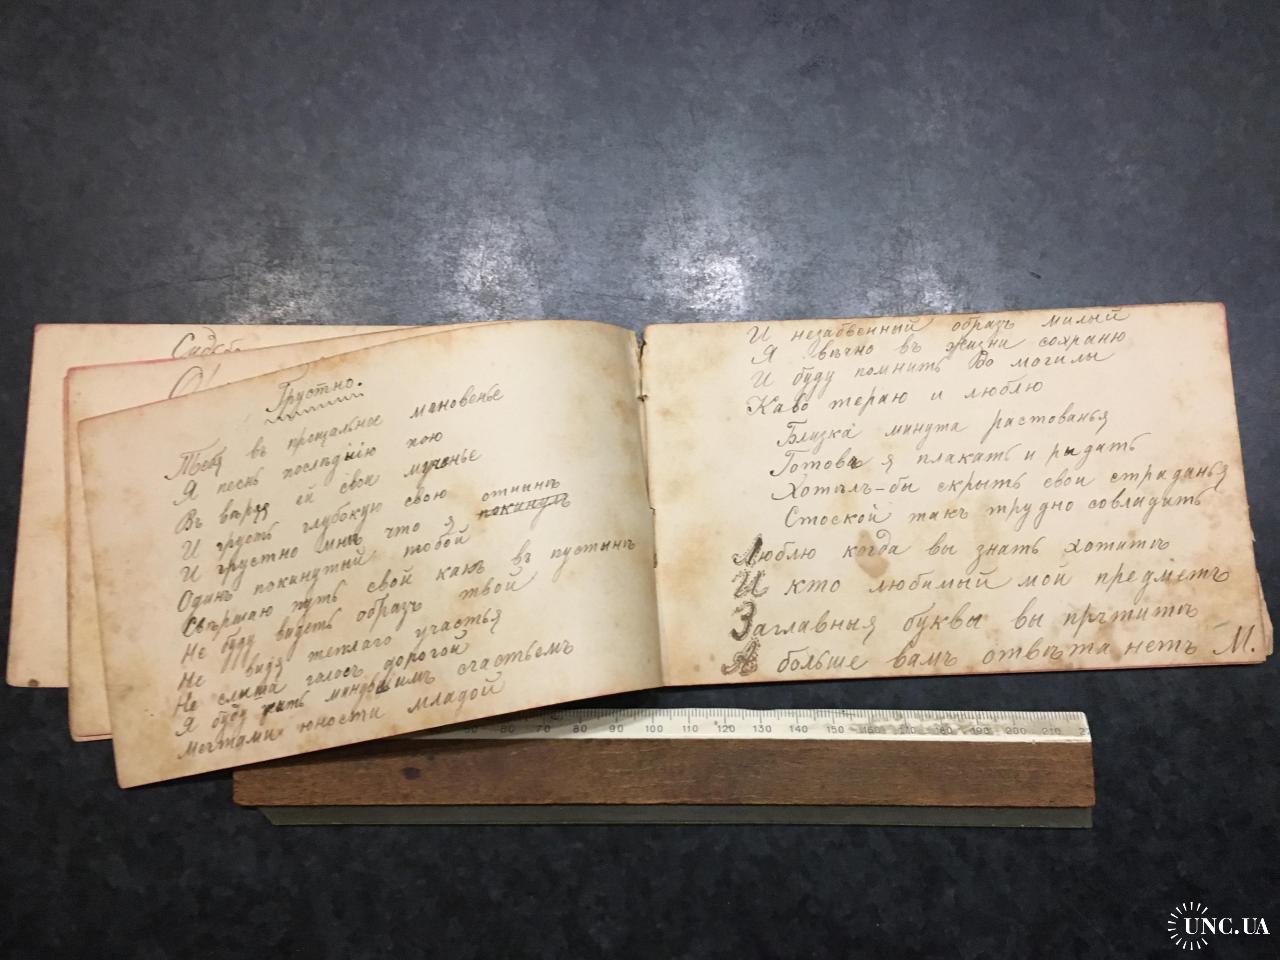 Грустно.
Тебя въ прощальное мгновенье
Я песнь последнiю пою
Въ веряя ей свои мученье
И грусть глубокую свою
И грустно мнѣ что я отнынѣ
покинутъ
Одинъ покинутый тобой
Свършаю путь свой какъ въ пустынѣ
Не буду видеть образъ твой
Не видя теплаго участья
Не слыша голосъ дорогой
Я буду жить минувшимъ счастьемъ
Мечтами юности младой
И незабвенный образъ милый
Я вѣчно въ жизни сохраню
И буду помнить До могилы
Каво теряю и люблю
Близка минута растованья
Готовъ я плакать и рыдать
Хотѣлъ-бы скрыть свои страданья
Стоской такъ трудно совладить
Люблю когда вы знать хотитѣ
И кто любимый мой предметъ
Заглавныя буквы вы прѣтитѣ
А больше вамъ отвѣта нетъ М.
50 60 70 80 90 100 110 120 130 140 150 160 170 180 190 200 210
UNC.UA